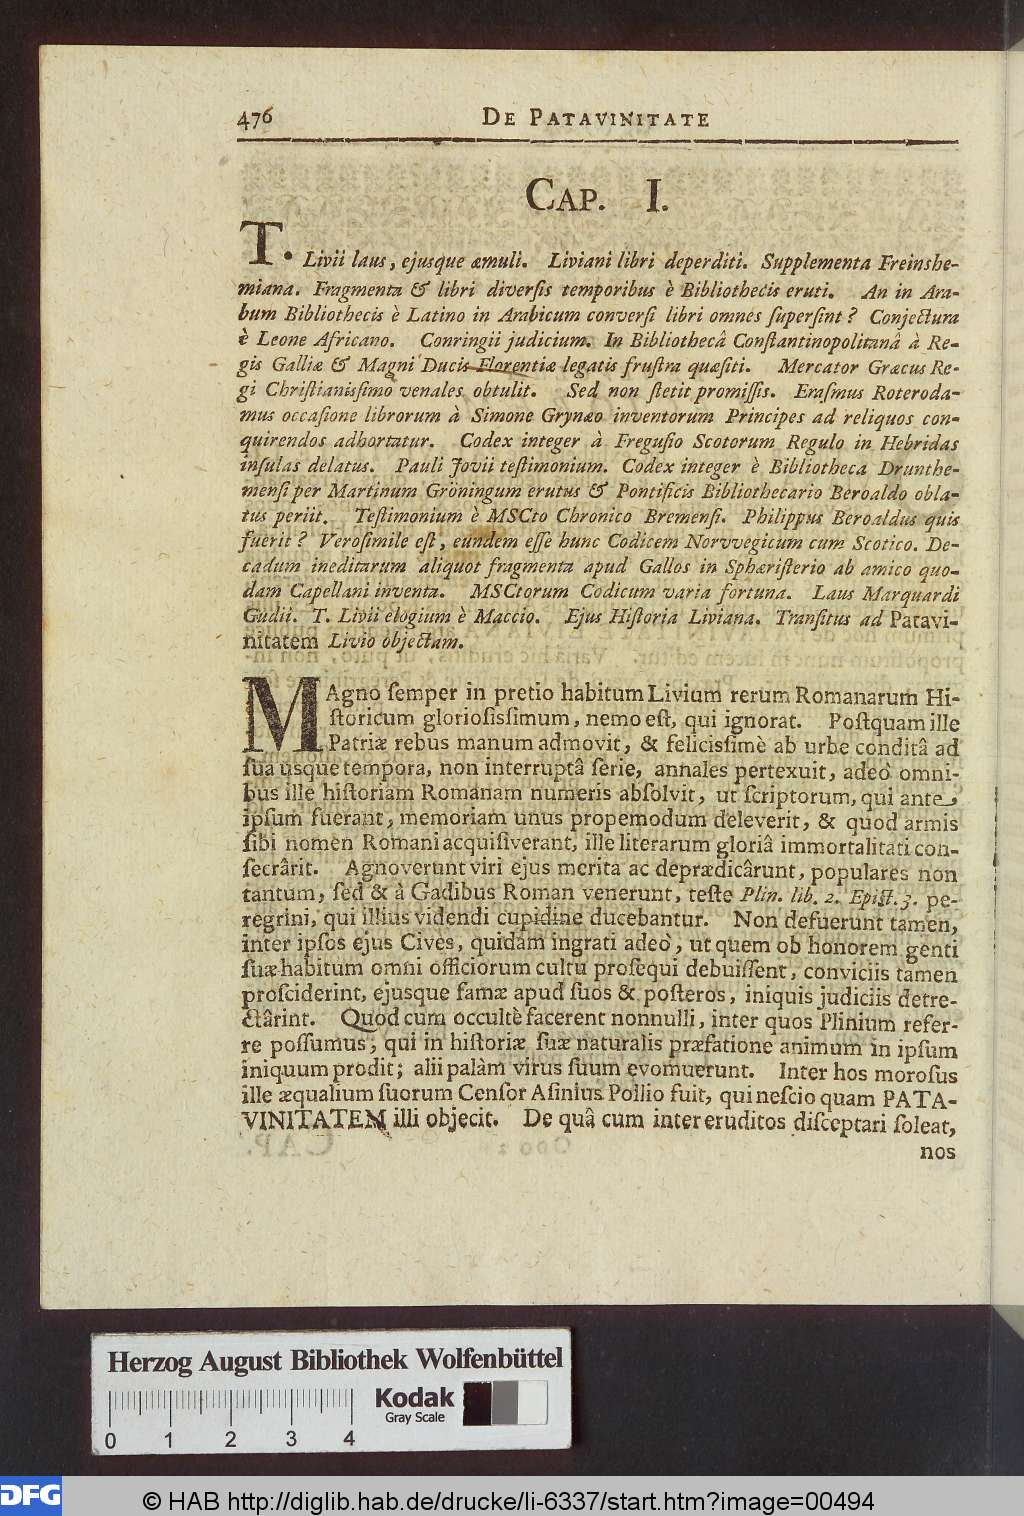 476 DE PATAVINITATE
CAP. I.
T. Livii laus, ejusque æmuli. Liviani libri deperditi. Supplementa Freinshe-
miana. Fragmenta & libri diverſis temporibus è Bibliothecis eruti. An in Ara-
bum Bibliothecis è Latino in Arabicum converſi libri omnes ſuperſint? Conjectura
è Leone Africano. Conringii judicium. In Bibliothecâ Conſtantinopolitanâ à Re-
gis Galliæ & Magni Ducis Florentiæ legatis fruſtra quæſiti. Mercator Græcus Re-
gi Chriſtianiſſimo venales obtulit. Sed non ſtetit promiſſis. Eraſmus Roteroda-
mus occaſione librorum à Simone Grynæo inventorum Principes ad reliquos con-
quirendos adhortatur. Codex integer à Freguſio Scotorum Regulo in Hebridas
inſulas delatus. Pauli Jovii teſtimonium. Codex integer è Bibliotheca Drunthe-
menſi per Martinum Gröningum erutus & Pontificis Bibliothecario Beroaldo obla-
tus periit. Teſtimonium è MSCto Chronico Bremenſi. Philippus Beroaldus quis
fuerit? Veroſimile eſt, eundem eſſe hunc Codicem Norvvegicum cum Scotico. De-
cadum ineditarum aliquot fragmenta apud Gallos in Sphæriſterio ab amico quo-
dam Capellani inventa. MSCtorum Codicum varia fortuna. Laus Marquardi
Gudii. T. Livii elogium è Maccio. Ejus Hiſtoria Liviana. Tranſitus ad Patavi-
nitatem Livio objectam.
MAgno ſemper in pretio habitum Livium rerum Romanarum Hi-
ſtoricum glorioſiſſimum, nemo eſt, qui ignorat. Poſtquam ille
Patriæ rebus manum admovit, & feliciſſimè ab urbe conditâ ad
ſua usque tempora, non interruptâ ſerie, annales pertexuit, adeò omni-
bus ille hiſtoriam Romanam numeris abſolvit, ut ſcriptorum, qui ante
ipſum fuerant, memoriam unus propemodum deleverit, & quod armis
ſibi nomen Romani acquiſiverant, ille literarum gloriâ immortalitati con-
ſecrârit. Agnoverunt viri ejus merita ac deprædicârunt, populares non
tantum, ſed & à Gadibus Roman venerunt, teſte Plin. lib. 2. Epiſt. 3. pe-
regrini, qui illius videndi cupidine ducebantur. Non defuerunt tamen,
inter ipſos ejus Cives, quidam ingrati adeò, ut quem ob honorem genti
ſuæ habitum omni officiorum cultu proſequi debuiſſent, conviciis tamen
proſciderint, ejusque famæ apud ſuos & poſteros, iniquis judiciis detre-
ctârint. Quod cum occultè facerent nonnulli, inter quos Plinium refer-
re poſſumus, qui in hiſtoriæ ſuæ naturalis præfatione animum in ipſum
iniquum prodit; alii palàm virus ſuum evomuerunt. Inter hos moroſus
ille æqualium ſuorum Cenſor Aſinius Pollio fuit, qui neſcio quam PATA-
VINITATEM illi objecit. De quâ cum inter eruditos diſceptari ſoleat,
nos
Herzog August Bibliothek Wolfenbüttel
Kodak
Gray Scale
0 1 2 3 4
DFG
© HAB http://diglib.hab.de/drucke/li-6337/start.htm?image=00494